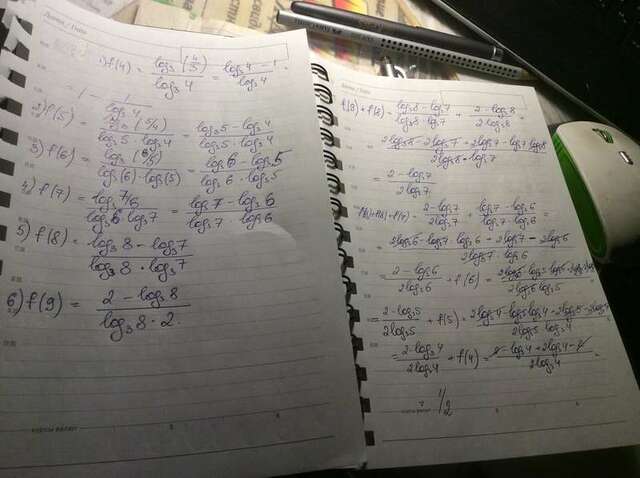 1) f(4) = log₃(4/3) / log₃4 = log₃4 - 1 / log₃4 =
= 1 - 1 / log₃4
2) f(5) = log₃(5/4) / log₃5 · log₃4 = log₃5 - log₃4 / log₃5 · log₃4
3) f(6) = log₃(6/5) / log₃(6) · log₃(5) = log₃6 - log₃5 / log₃6 · log₃5
4) f(7) = log₃7/6 / log₃6 log₃7 = log₃7 - log₃6 / log₃7 · log₃6
5) f(8) = log₃8 - log₃7 / log₃8 · log₃7
6) f(9) = 2 - log₃8 / log₃8 · 2.
f(9) + f(8) = log₃8 - log₃7 / log₃8 · log₃7 + 2 - log₃8 / 2log₃8 =
2log₃8 - 2log₃7 + 2log₃7 - log₃7 log₃8 / 2log₃8 · log₃7
= 2 - log₃7 / 2log₃7
f(9)+f(8)+f(7) = 2 - log₃7 / 2log₃7 + log₃7 - log₃6 / log₃7 · log₃6 =
= 2log₃6 - log₃7 log₃6 + 2log₃7 - 2log₃6 / 2log₃7 · log₃6
= 2 - log₃6 / 2log₃6 + f(6) =
= 2 - log₃5 / 2log₃5 + f(5) =
= 2 - log₃4 / 2log₃4 + f(4) = 2 - log₃4 + 2log₃4 - 2 / 2log₃4 =
1/2